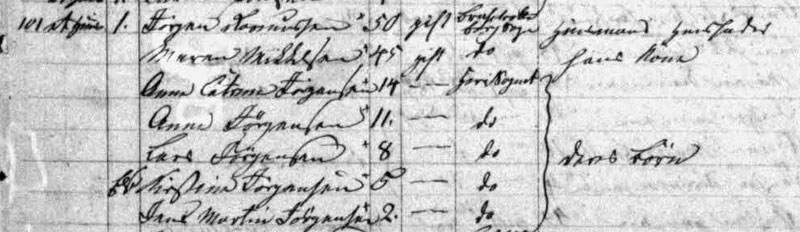 101 et Huus 1. Jörgen Rasmussen 50 gift Huusmand
Maren Mikkelsen 45 gift do hans Kone
Anne Cathrine Jörgensen 14 — Herr Sognet
Anne Jörgensen 11. — do
Lars Jörgensen 8 — do deres Börn
Kirstine Jörgensen 5 — do
Jens Martin Jörgensen 2. — do